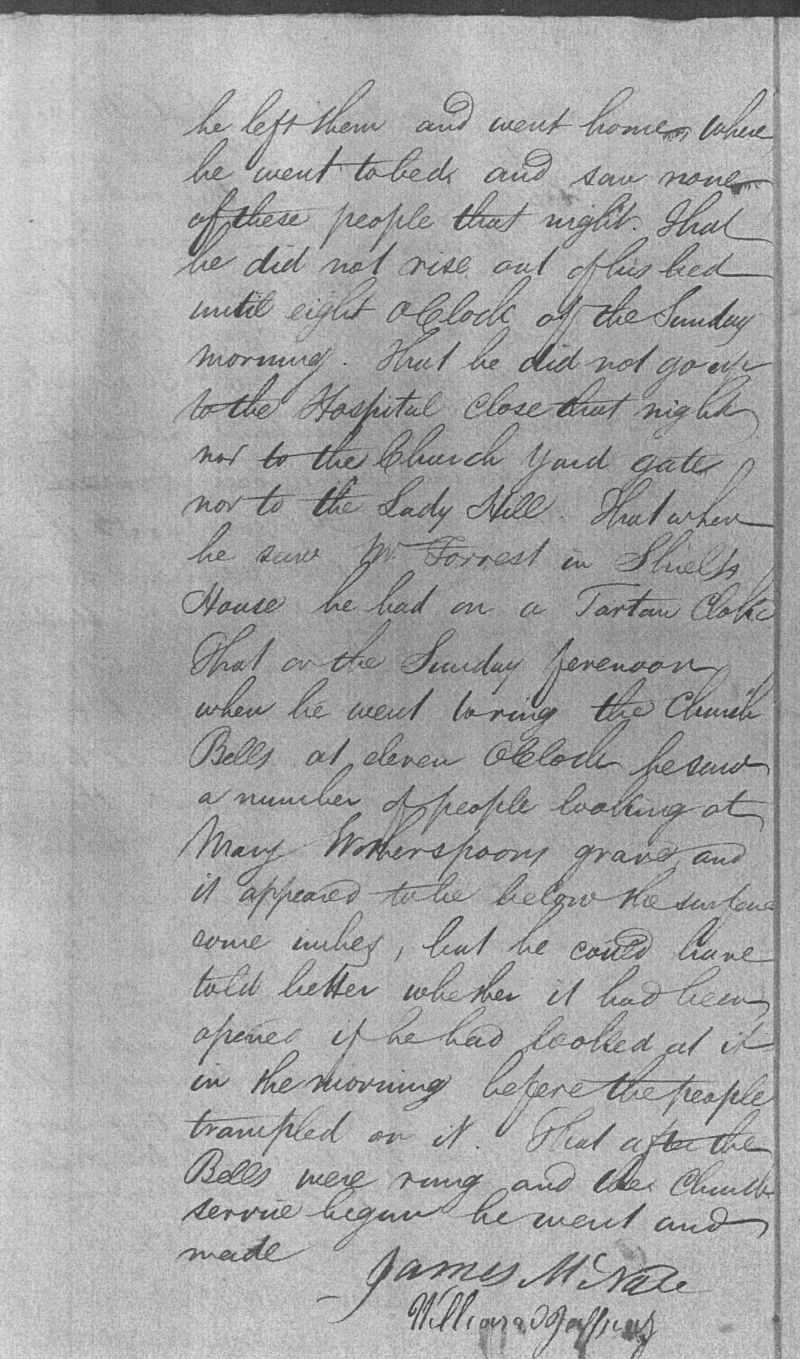 he left them and went home, where
he went to bed, and saw none
of these people that night. That
he did not rise out of his bed
until eight OClock of the Sunday
morning. That he did not go up
to the Hospital close that night
nor to the Church Yard gate
nor to the Lady Hill. That when
he saw Mr Forrest in Shiels
House he had on a Tartan Cloke
That on the Sunday forenoon
when he went to ring the Church
Bells at eleven OClock he saw
a number of people looking at
Mary Wotherspoons grave, and
it appeared to be below the surface
some inches, but he could have
told better whether it had been
opened if he had looked at it
in the morning before the people
trampled on it. That after the
Bells were rung and the Church
service begun he went and
made
James McNab
William